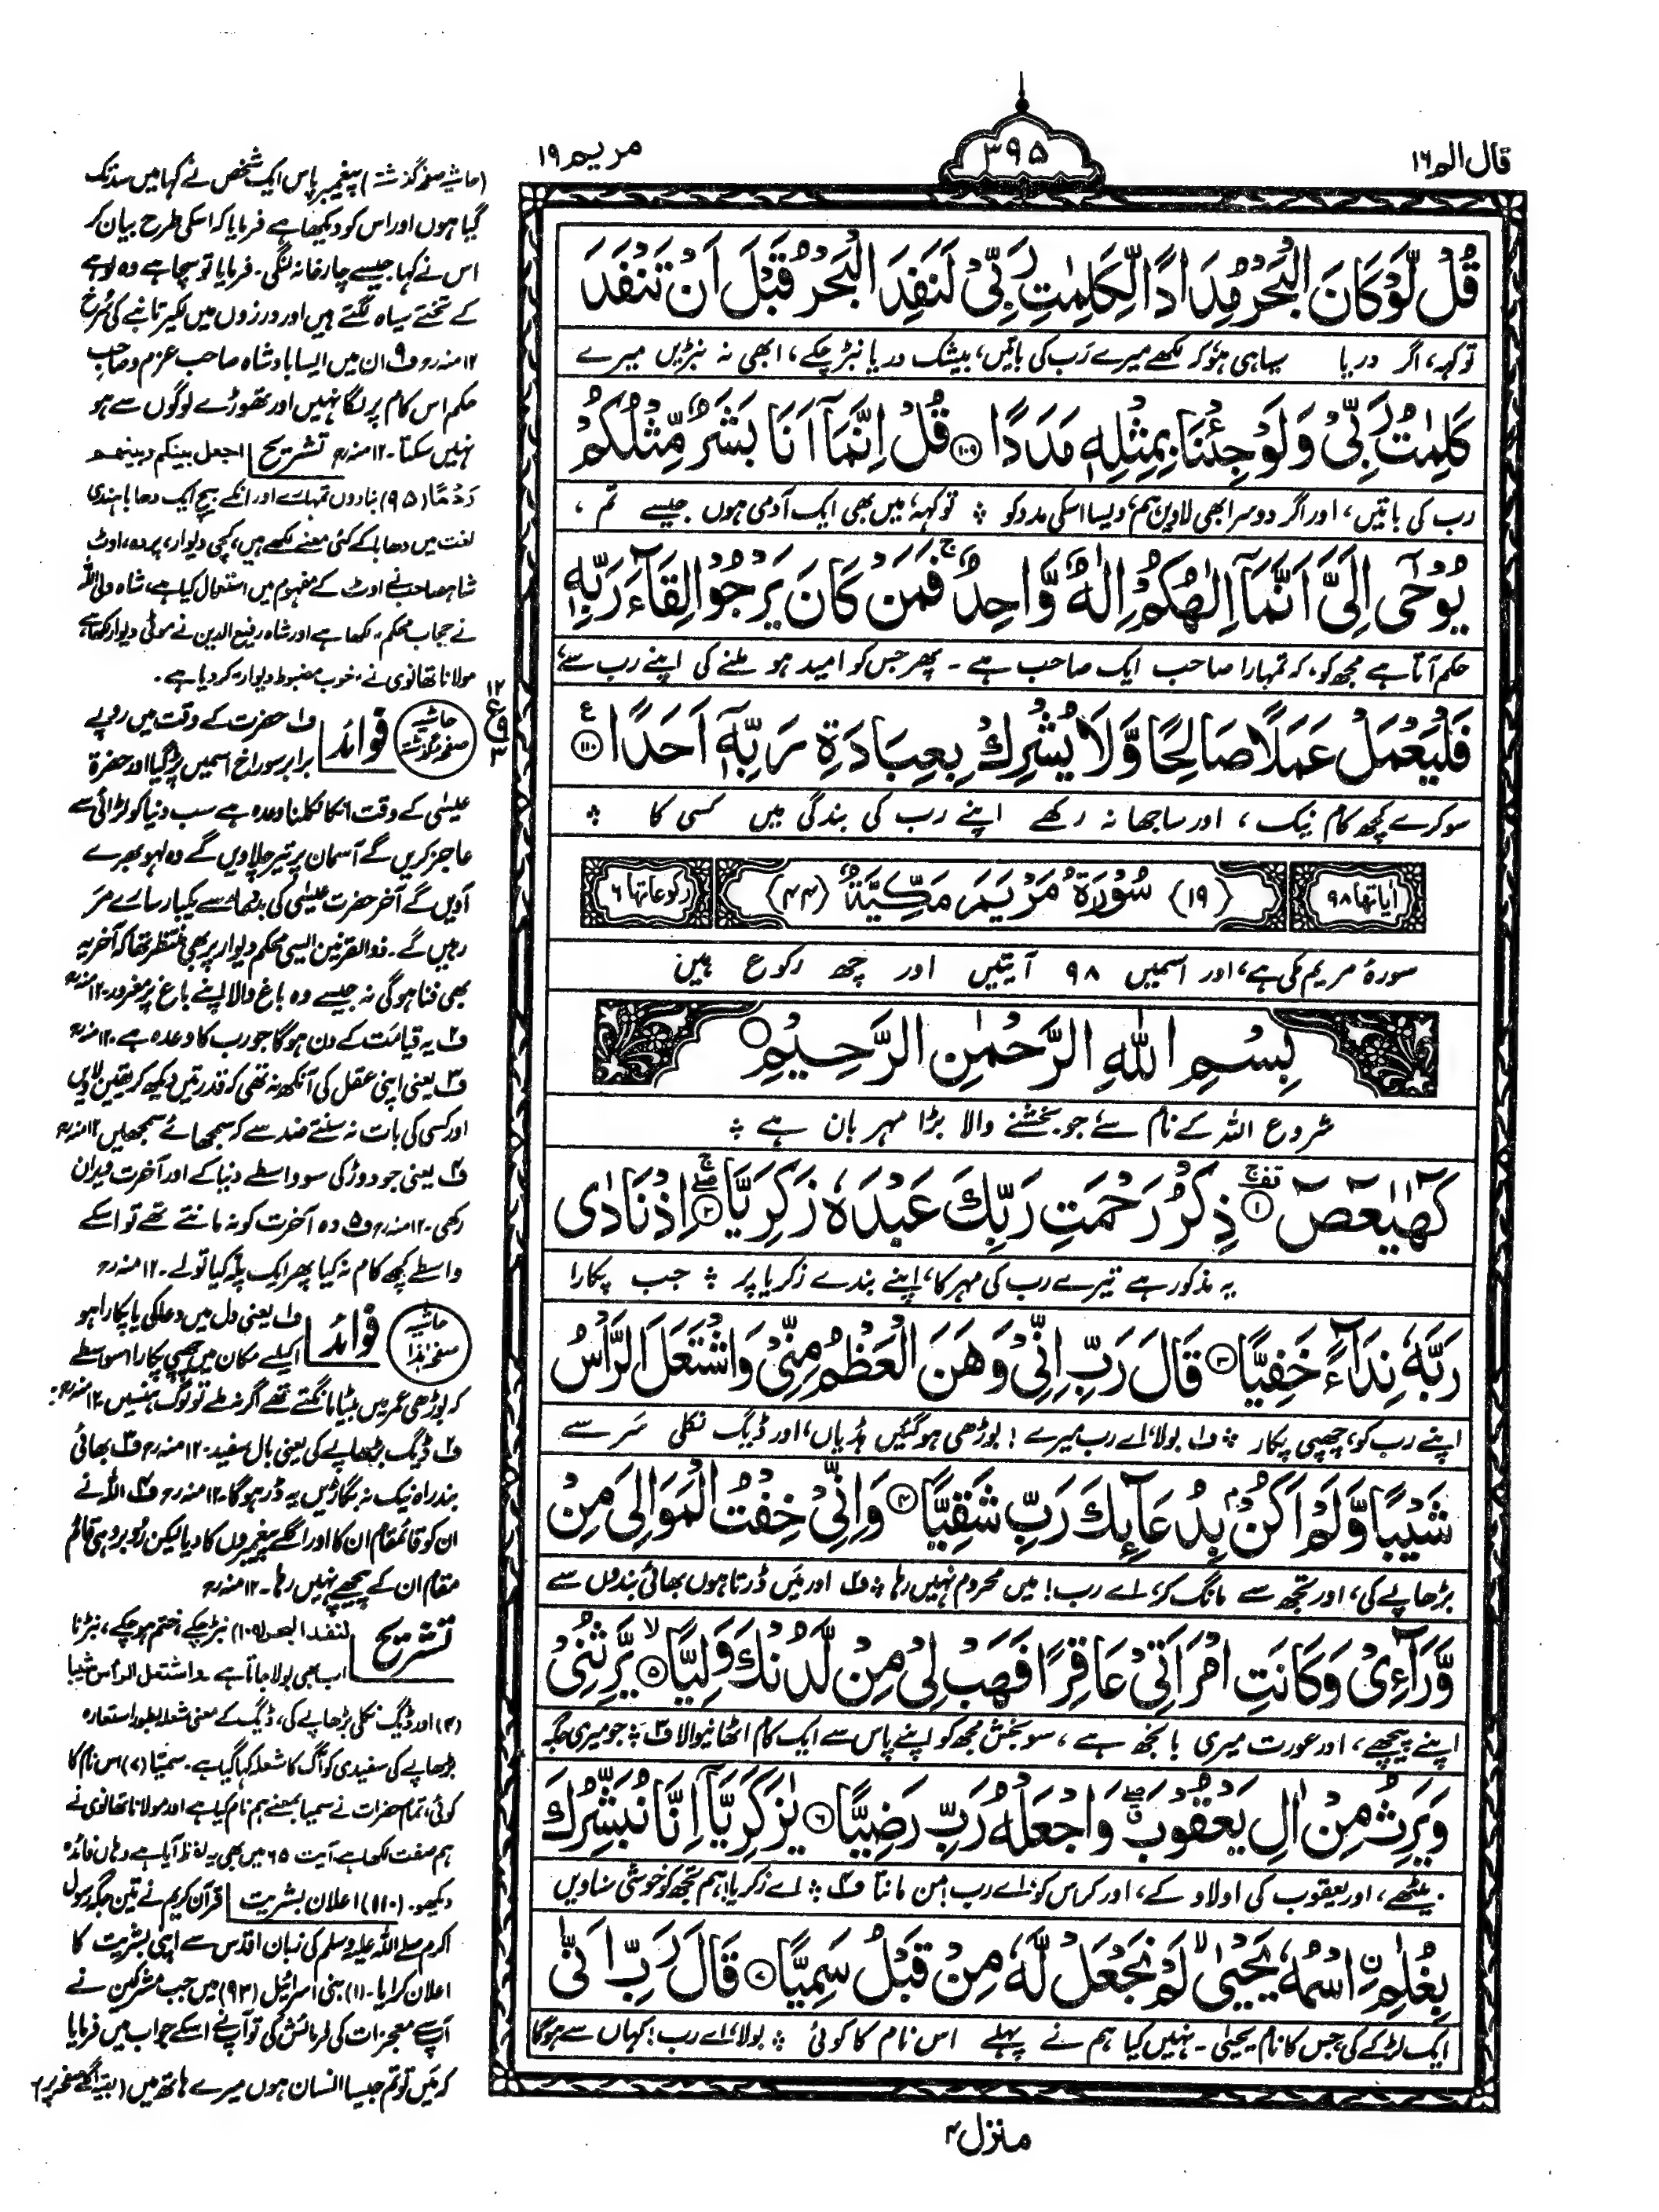 قال الم ۱۶
۳۹۵
مریم ۱۹
قُلْ لَّوْ كَانَ الْبَحْرُ مِدَادًا لِّكَلِمٰتِ رَبِّیْ لَنَفِدَ الْبَحْرُ قَبْلَ اَنْ تَنْفَدَ
تو کہہ، اگر دریا سیاہی ہو کر لکھے میرے رب کی باتیں، بیشک دریا نبڑ چکے، ابھی نہ نبڑیں میرے
كَلِمٰتُ رَبِّیْ وَلَوْ جِئْنَا بِمِثْلِهٖ مَدَدًا ۝۱۰۹ قُلْ اِنَّمَاۤ اَنَا بَشَرٌ مِّثْلُكُمْ
رب کی باتیں، اور اگر دوسرا بھی لاویں ہم، ویسا اسکی مدد کو ۞ تو کہہ، میں بھی ایک آدمی ہوں جیسے تم،
یُوْحٰۤی اِلَیَّ اَنَّمَاۤ اِلٰهُكُمْ اِلٰهٌ وَّاحِدٌ ۚ فَمَنْ كَانَ یَرْجُوْا لِقَآءَ رَبِّهٖ
حکم آتا ہے مجھ کو، کہ تمہارا صاحب ایک صاحب ہے۔ پھر جس کو امید ہو ملنے کی اپنے رب سے،
فَلْیَعْمَلْ عَمَلًا صَالِحًا وَّلَا یُشْرِكْ بِعِبَادَةِ رَبِّهٖۤ اَحَدًا ۝۱۱۰ ع
سو کرے کچھ کام نیک، اور ساجھا نہ رکھے اپنے رب کی بندگی میں کسی کا ۞
اٰیاتها ۹۸ (۱۹) سُوْرَةُ مَرْیَمَ مَكِّیَّةٌ (۴۴) رکوعاتها ۶
سورۂ مریم مکی ہے، اور اسمیں ۹۸ آیتیں اور چھ رکوع ہیں
بِسْمِ اللّٰهِ الرَّحْمٰنِ الرَّحِیْمِ
شروع اللہ کے نام سے، جو بخشنے والا بڑا مہربان ہے ۞
كٓهٰیٰعٓصٓ ۝۱ ذِكْرُ رَحْمَتِ رَبِّكَ عَبْدَهٗ زَكَرِیَّا ۝۲ اِذْ نَادٰی
یہ مذکور ہے تیرے رب کی مہر کا، اپنے بندے زکریا پر ۞ جب پکارا
رَبَّهٗ نِدَآءً خَفِیًّا ۝۳ قَالَ رَبِّ اِنِّیْ وَهَنَ الْعَظْمُ مِنِّیْ وَاشْتَعَلَ الرَّاْسُ
اپنے رب کو، چھپی پکار ۞ ف۱ بولا، اے رب میرے! بوڑھی ہو گئیں ہڈیاں، اور ڈیگ نکلی سر سے
شَیْبًا وَّلَمْ اَكُنْۢ بِدُعَآئِكَ رَبِّ شَقِیًّا ۝۴ وَاِنِّیْ خِفْتُ الْمَوَالِیَ مِنْ
بڑھاپے کی، اور تجھ سے مانگ کر، اے رب! میں محروم نہیں رہا ۞ ف۲ اور میں ڈرتا ہوں بھائی بندوں سے
وَّرَآءِیْ وَكَانَتِ امْرَاَتِیْ عَاقِرًا فَهَبْ لِیْ مِنْ لَّدُنْكَ وَلِیًّا ۝۵ یَّرِثُنِیْ
اپنے پیچھے، اور عورت میری بانجھ ہے، سو بخش مجھ کو اپنے پاس سے ایک کام اٹھانیوالا ف۳ ۞ جو میری جگہ
وَیَرِثُ مِنْ اٰلِ یَعْقُوْبَ وَاجْعَلْهُ رَبِّ رَضِیًّا ۝۶ یٰزَكَرِیَّاۤ اِنَّا نُبَشِّرُكَ
بیٹھے، اور یعقوب کی اولاد کے، اور کر اس کو، اے رب! من مانتا ف۴ ۞ اے زکریا! ہم تجھ کو خوشی سناویں
بِغُلٰمِ ِ۟اسْمُهٗ یَحْیٰی لَمْ نَجْعَلْ لَّهٗ مِنْ قَبْلُ سَمِیًّا ۝۷ قَالَ رَبِّ اَنّٰی
ایک لڑکے کی، جس کا نام یحییٰ۔ نہیں کیا ہم نے پہلے اس نام کا کوئی ۞ بولا، اے رب! کہاں سے ہوگا
منزل ۴
(حاشیہ صفحہ گذشتہ) پیغمبر پاس ایک شخص نے کہا میں سد تک
گیا ہوں اور اس کو دیکھا ہے فرمایا کہ اسکی طرح بیان کر
اس نے کہا جیسے چار خانہ لنگی۔ فرمایا تو سچا ہے وہ لوہے
کے تختے سیاہ لگتے ہیں اور درزوں میں لکیر تانبے کی سرخ
۱۲ منہ رح ف۹ ان میں ایسا بادشاہ صاحب عزم و صاحب
حکم اس کام پر لگا نہیں اور تھوڑے لوگوں سے ہو
نہیں سکتا۔ ۱۲ منہ رح تشریح اجعل بینکم و بینهم
رَدْمًا (۹۵) بنا دوں تمہارے اور انکے بیچ ایک دھابا ہندی
لغت میں دھابا کے کئی معنے لکھے ہیں، کچی دیوار، پردہ، اوٹ
شاہ صاحب نے اوٹ کے مفہوم میں استعمال کیا ہے، شاہ ولی اللہ
نے حجاب محکم، لکھا ہے اور شاہ رفیع الدین نے موٹی دیوار لکھا ہے
مولانا تھانوی نے، خوب مضبوط دیوار، کر دیا ہے۔
۱۲ ع ۳
حاشیہ صفحہ گذشتہ فوائد ف۱ حضرت کے وقت میں روپے
برابر سوراخ اسمیں پڑ گیا اور حضرۃ
عیسٰی کے وقت انکا نکلنا وعدہ ہے سب دنیا کو لڑائی سے
عاجز کریں گے آسمان پر تیر چلاویں گے وہ لہو بھرے
آویں گے آخر حضرت عیسٰی کی بددعا سے یکبار سارے مر
رہیں گے۔ ذوالقرنین ایسی محکم دیوار پر بھی منتظر تھا کہ آخر یہ
بھی فنا ہوگی نہ جیسے وہ باغ والا اپنے باغ پر مغرور۔ ۱۲ منہ رح
ف۲ یہ قیامت کے دن ہوگا جو رب کا وعدہ ہے ۱۲ منہ رح
ف۳ یعنی اپنی عقل کی آنکھ نہ تھی کہ قدرتیں دیکھ کر یقین لاویں
اور کسی کی بات نہ سنتے ضد سے کہ سمجھائے سمجھیں ۱۲ منہ رح
ف۴ یعنی جو دوڑ کی سو واسطے دنیا کے اور آخرت ویران
رکھی۔ ۱۲ منہ رح ف۵ وہ آخرت کو نہ مانتے تھے تو اسکے
واسطے کچھ کام نہ کیا پھر ایک پلہ کیا تولے۔ ۱۲ منہ رح
حاشیہ صفحہ ہٰذا فوائد ف۱ یعنی دل میں دعا کی یا پکارا ہو
اکیلے مکان میں چھپی پکارا اسواسطے
کہ بوڑھی عمر میں بیٹا مانگتے تھے اگر نہ ملے تو لوگ ہنسیں۔ ۱۲ منہ رح
ف۲ ڈیگ بڑھاپے کی یعنی بال سفید۔ ۱۲ منہ رح ف۳ بھائی
بند راہ نیک نہ بگاڑیں یہ ڈر ہوگا۔ ۱۲ منہ رح ف۴ اللہ نے
ان کو قائمقام ان کا اور اگلے پیغمبروں کا دیا لیکن روبرو ہی قائم
مقام ان کے پیچھے نہیں رہا۔ ۱۲ منہ رح
تشریح لنفد البحر (۱۰۹) نبڑ چکے، ختم ہو چکے، نبڑنا
اب بھی بولا جاتا ہے۔ واشتعل الراس شیبا
(۴) اور ڈیگ نکلی بڑھاپے کی، ڈیگ کے معنی شعلہ بطور استعارہ
بڑھاپے کی سفیدی کو آگ کا شعلہ کہا گیا ہے۔ سمیّا (۷) اس نام کا
کوئی، تمام حضرات نے سمیا بمعنے ہم نام کیا ہے اور مولانا تھانوی نے
ہم صفت لکھا ہے آیت ۶۵ میں بھی یہ لفظ آیا ہے وہاں فائدہ
دیکھو۔ (۱۱۰) اعلان بشریت قرآن کریم نے تین جگہ رسول
اکرم صلے اللہ علیہ وسلم کی زبان اقدس سے اپنی بشریت کا
اعلان کرایا۔ (۱) بنی اسرائیل (۹۳) میں جب مشرکین نے
آپ سے معجزات کی فرمائش کی تو آپ نے اسکے جواب میں فرمایا
کہ میں تو تم جیسا انسان ہوں میرے ہاتھ میں (بقیہ اگلے صفحہ پر)